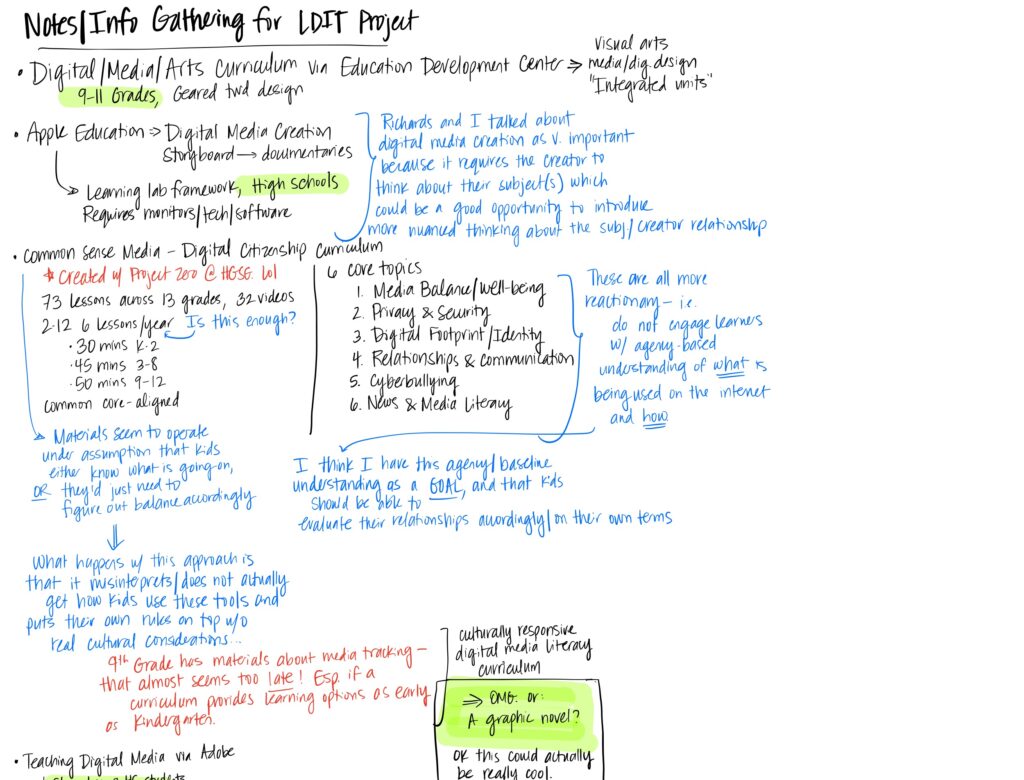 Notes/Info Gathering for LDIT Project
• Digital/Media/Arts Curriculum via Education Development Center ⇒
visual arts
media/dig. design
"Integrated units"
9-11 Grades, Geared twd design
• Apple Education ⇒ Digital Media Creation
Storyboard → documentaries
Learning lab framework, High Schools
Requires monitors/tech/software
Richards and I talked about
digital media creation as v. important
because it requires the creator to
think about their subject(s) which
could be a good opportunity to introduce
more nuanced thinking about the subj./creator relationship
• Common Sense Media - Digital Citizenship Curriculum
* Created w/ Project Zero @ HGSE. lol
73 lessons across 13 grades, 32 videos
2-12 6 lessons/year Is this enough?
• 30 mins K-2
• 45 mins 3-8
• 50 mins 9-12
common core-aligned
6 core topics
1. Media Balance/well-being
2. Privacy & Security
3. Digital Footprint/Identity
4. Relationships & communication
5. Cyberbullying
6. News & Media Literacy
These are all more
reactionary - i.e.
do not engage learners
w/ agency-based
understanding of what is
being used on the internet
and how
Materials seem to operate
under assumption that kids
either know what is going-on,
OR they'd just need to
figure out balance accordingly
I think I have this agency/baseline
understanding as a GOAL, and that kids
should be able to
evaluate their relationships accordingly/on their own terms
What happens w/ this approach is
that it misinteprets/does not actually
get how kids use these tools and
puts their own rules on top w/o
real cultural considerations...
9th Grade has materials about media tracking -
that almost seems too late! Esp. if a
curriculum provides learning options as early
as Kindergarten.
culturally responsive
digital media literacy
curriculum
⇒ OMG. or:
A graphic novel?
OK this could actually
be really cool.
• Teaching Digital Media via Adobe
students